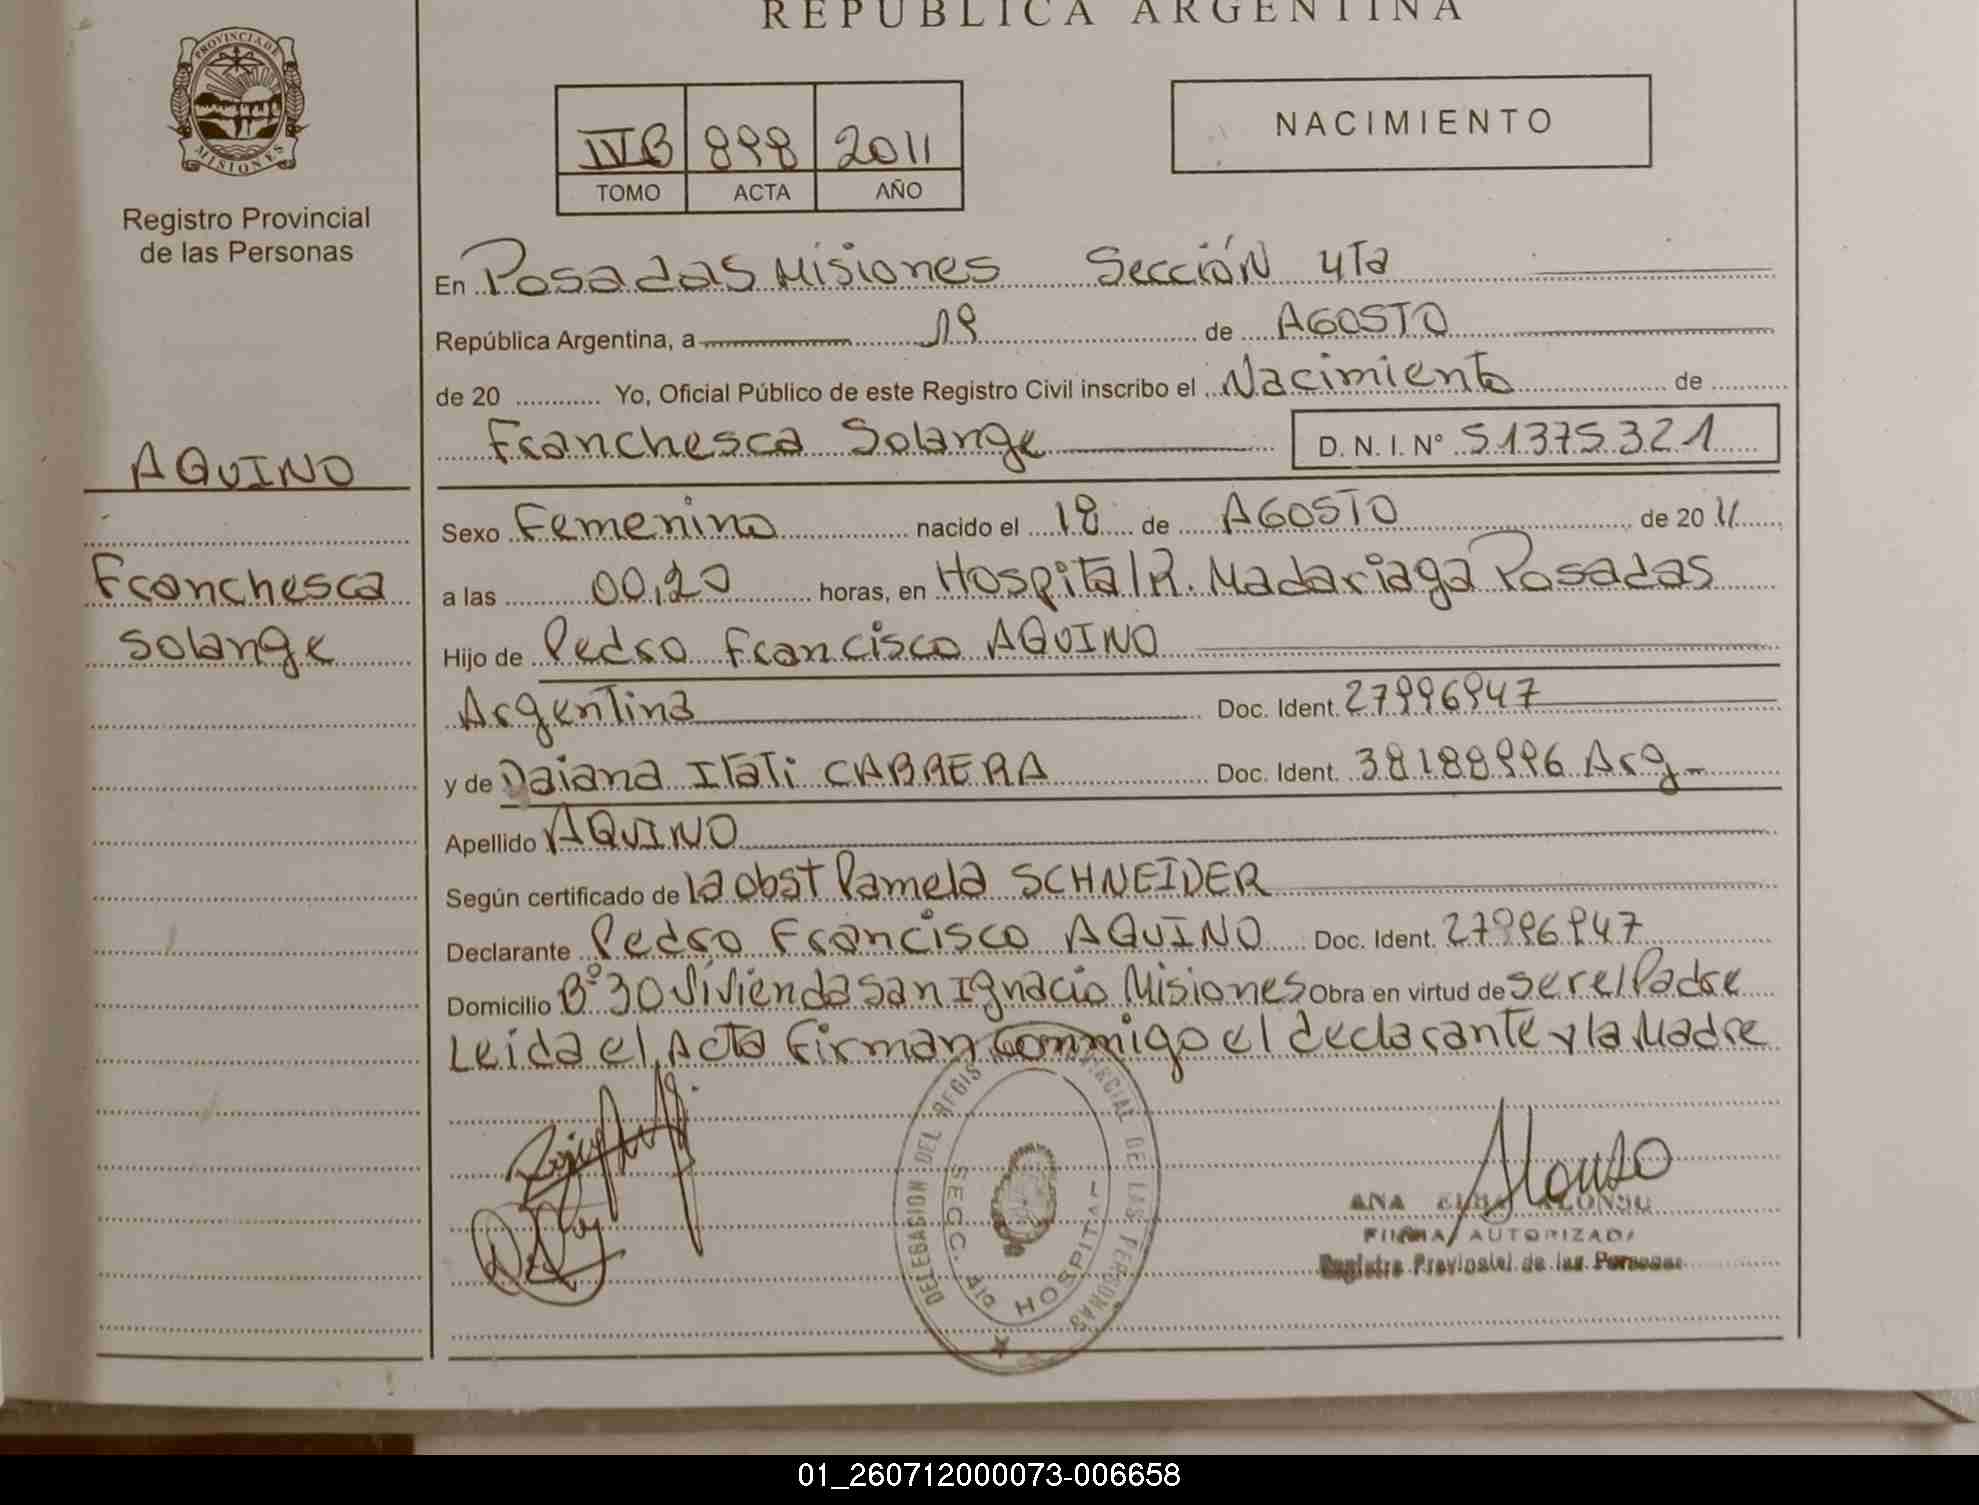 REPUBLICA ARGENTINA
PROVINCIA DE
MISIONES
Registro Provincial
de las Personas
IVB 898 2011
TOMO ACTA AÑO
NACIMIENTO
En Posadas Misiones Sección 4Ta
República Argentina, a 19 de AGOSTO
de 20 ............ Yo, Oficial Público de este Registro Civil inscribo el Nacimiento de
Franchesca Solange D. N. I. N° 51375321
AQUINO
Sexo Femenino nacido el 18 de AGOSTO de 2011
Franchesca
a las 00,20 horas, en Hospital R. Madariaga Posadas
Solange
Hijo de Pedro Francisco AQUINO
Argentina Doc. Ident. 27996947
y de Daiana Itati CABRERA Doc. Ident. 38188996 Arg-
Apellido AQUINO
Según certificado de la obst Pamela SCHNEIDER
Declarante Pedro Francisco AQUINO Doc. Ident. 27996947
Domicilio B° 30 Vivienda San Ignacio Misiones Obra en virtud de ser el Padre
Leida el Acta firman conmigo el declarante y la Madre
DELEGACION DEL REGIS
RCIAL DE LAS PERSONAS
SECC. 4ta HOSPITAL
Alonso
ANA ELBA ALONSO
FIRMA AUTORIZADA
Registro Provincial de las Personas
01_260712000073-006658